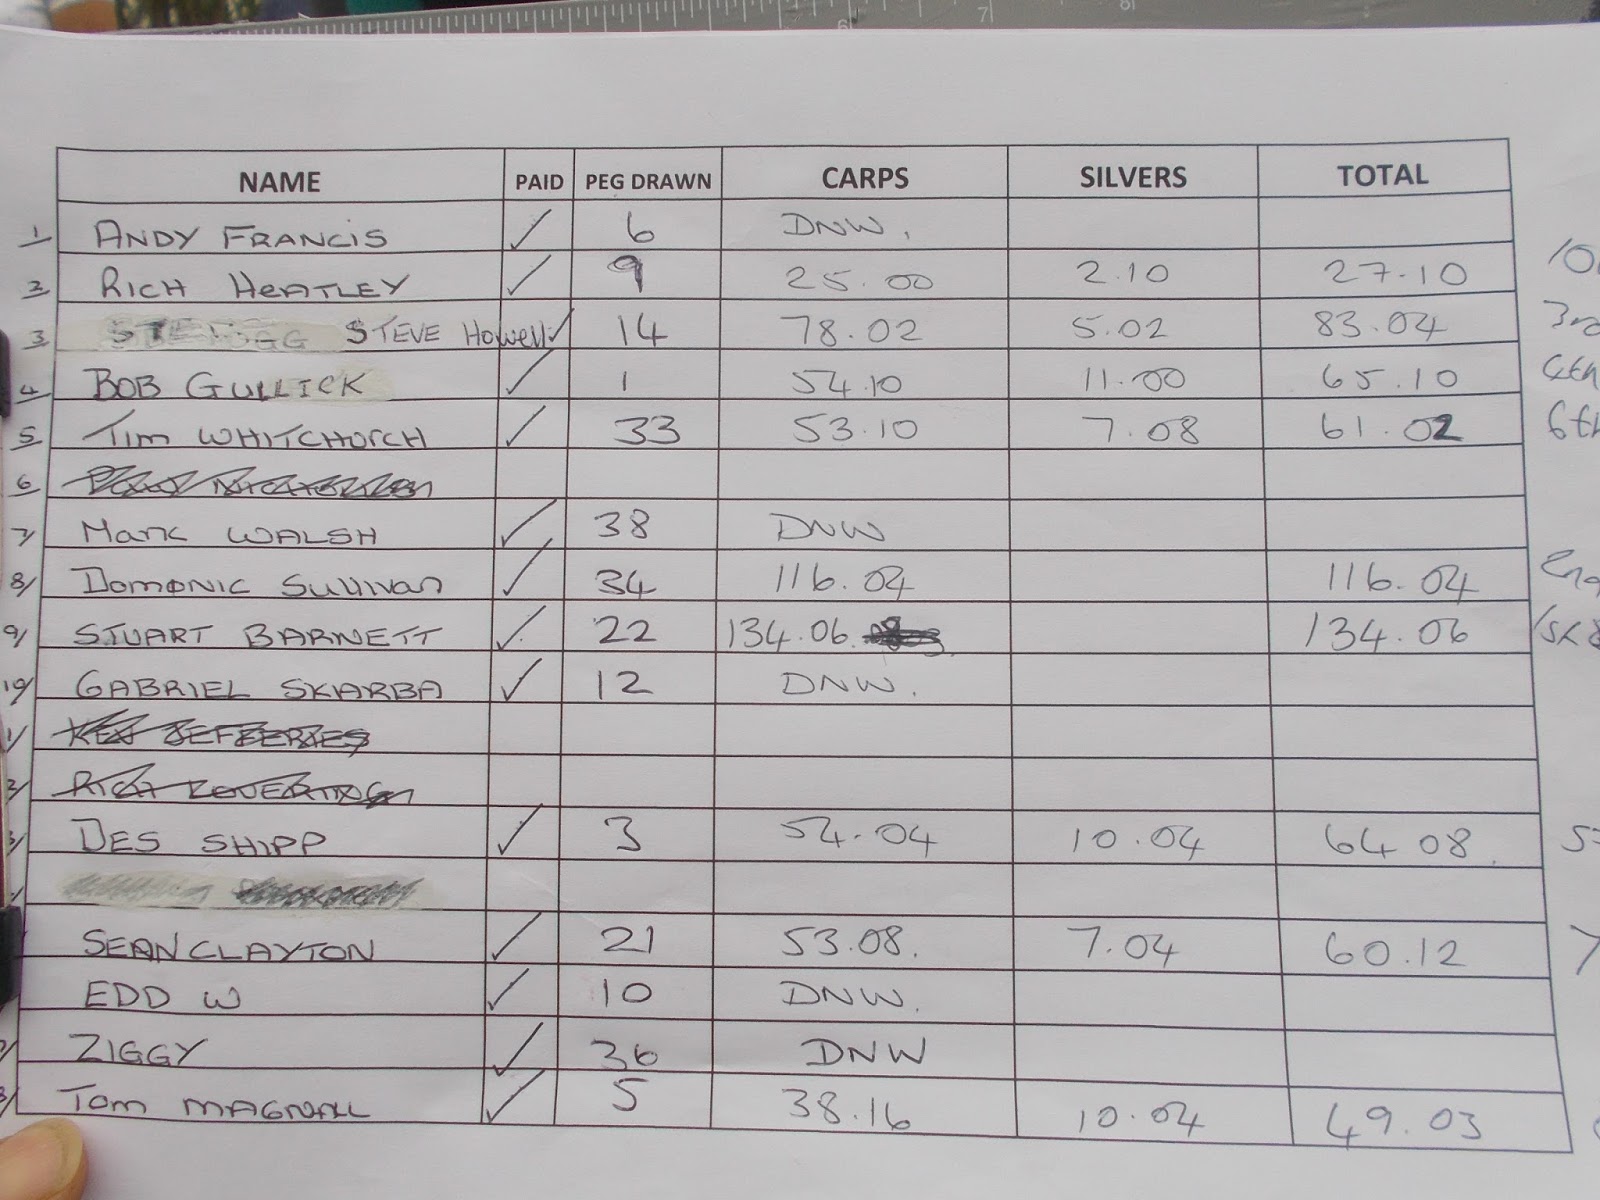 6 7 8
NAME PAID PEG DRAWN CARPS SILVERS TOTAL
1 ANDY FRANCIS ✓ 6 DNW.
2 RICH HEATLEY ✓ 9 25.00 2.10 27.10
3 STEVE Howell ✓ 14 78.02 5.02 83.04 3rd
4 BOB GULLICK ✓ 1 54.10 11.00 65.10 4th
5 Tim WHITCHURCH ✓ 33 53.10 7.08 61.02 6th
6
7/ MARK WALSH ✓ 38 DNW
8/ Domonic Sullivan ✓ 34 116.04 116.04
9/ STUART BARNETT ✓ 22 134.06 134.06
10/ GABRIEL SKARBA ✓ 12 DNW.
1/ KEN JEFFERIES
2/
3/ DES SHIPP ✓ 3 54.04 10.04 64 08
SEAN CLAYTON ✓ 21 53.08. 7.04 60.12 7
EDD W ✓ 10 DNW.
ZIGGY ✓ 36 DNW
8/ Tom MAGNALL ✓ 5 38.16 10.04 49.03